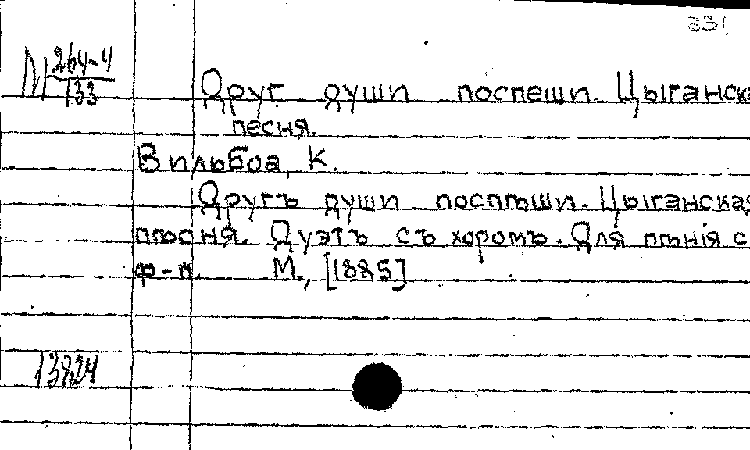 331
М 264-4
133
Друг души поспеши. Цыганск
песня.
Вильбоа, К.
Другъ души поспѣши. Цыганская
пѣсня. Дуэтъ съ хоромъ. Для пѣнія с
ф-п. М., [1885]
13824